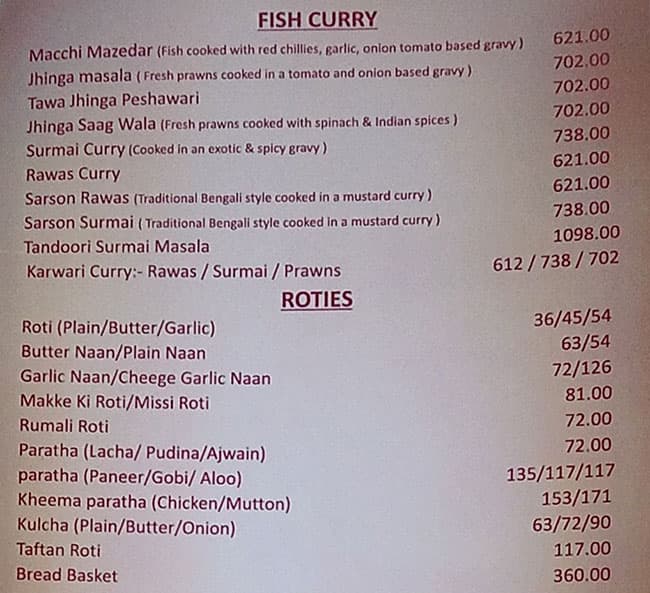 FISH CURRY
Macchi Mazedar (Fish cooked with red chillies, garlic, onion tomato based gravy) 621.00
Jhinga masala ( Fresh prawns cooked in a tomato and onion based gravy ) 702.00
Tawa Jhinga Peshawari 702.00
Jhinga Saag Wala (Fresh prawns cooked with spinach & Indian spices ) 702.00
Surmai Curry (Cooked in an exotic & spicy gravy ) 738.00
Rawas Curry 621.00
Sarson Rawas (Traditional Bengali style cooked in a mustard curry ) 621.00
Sarson Surmai ( Traditional Bengali style cooked in a mustard curry ) 738.00
Tandoori Surmai Masala 1098.00
Karwari Curry:- Rawas / Surmai / Prawns 612 / 738 / 702
ROTIES
Roti (Plain/Butter/Garlic) 36/45/54
Butter Naan/Plain Naan 63/54
Garlic Naan/Cheege Garlic Naan 72/126
Makke Ki Roti/Missi Roti 81.00
Rumali Roti 72.00
Paratha (Lacha/ Pudina/Ajwain) 72.00
paratha (Paneer/Gobi/ Aloo) 135/117/117
Kheema paratha (Chicken/Mutton) 153/171
Kulcha (Plain/Butter/Onion) 63/72/90
Taftan Roti 117.00
Bread Basket 360.00